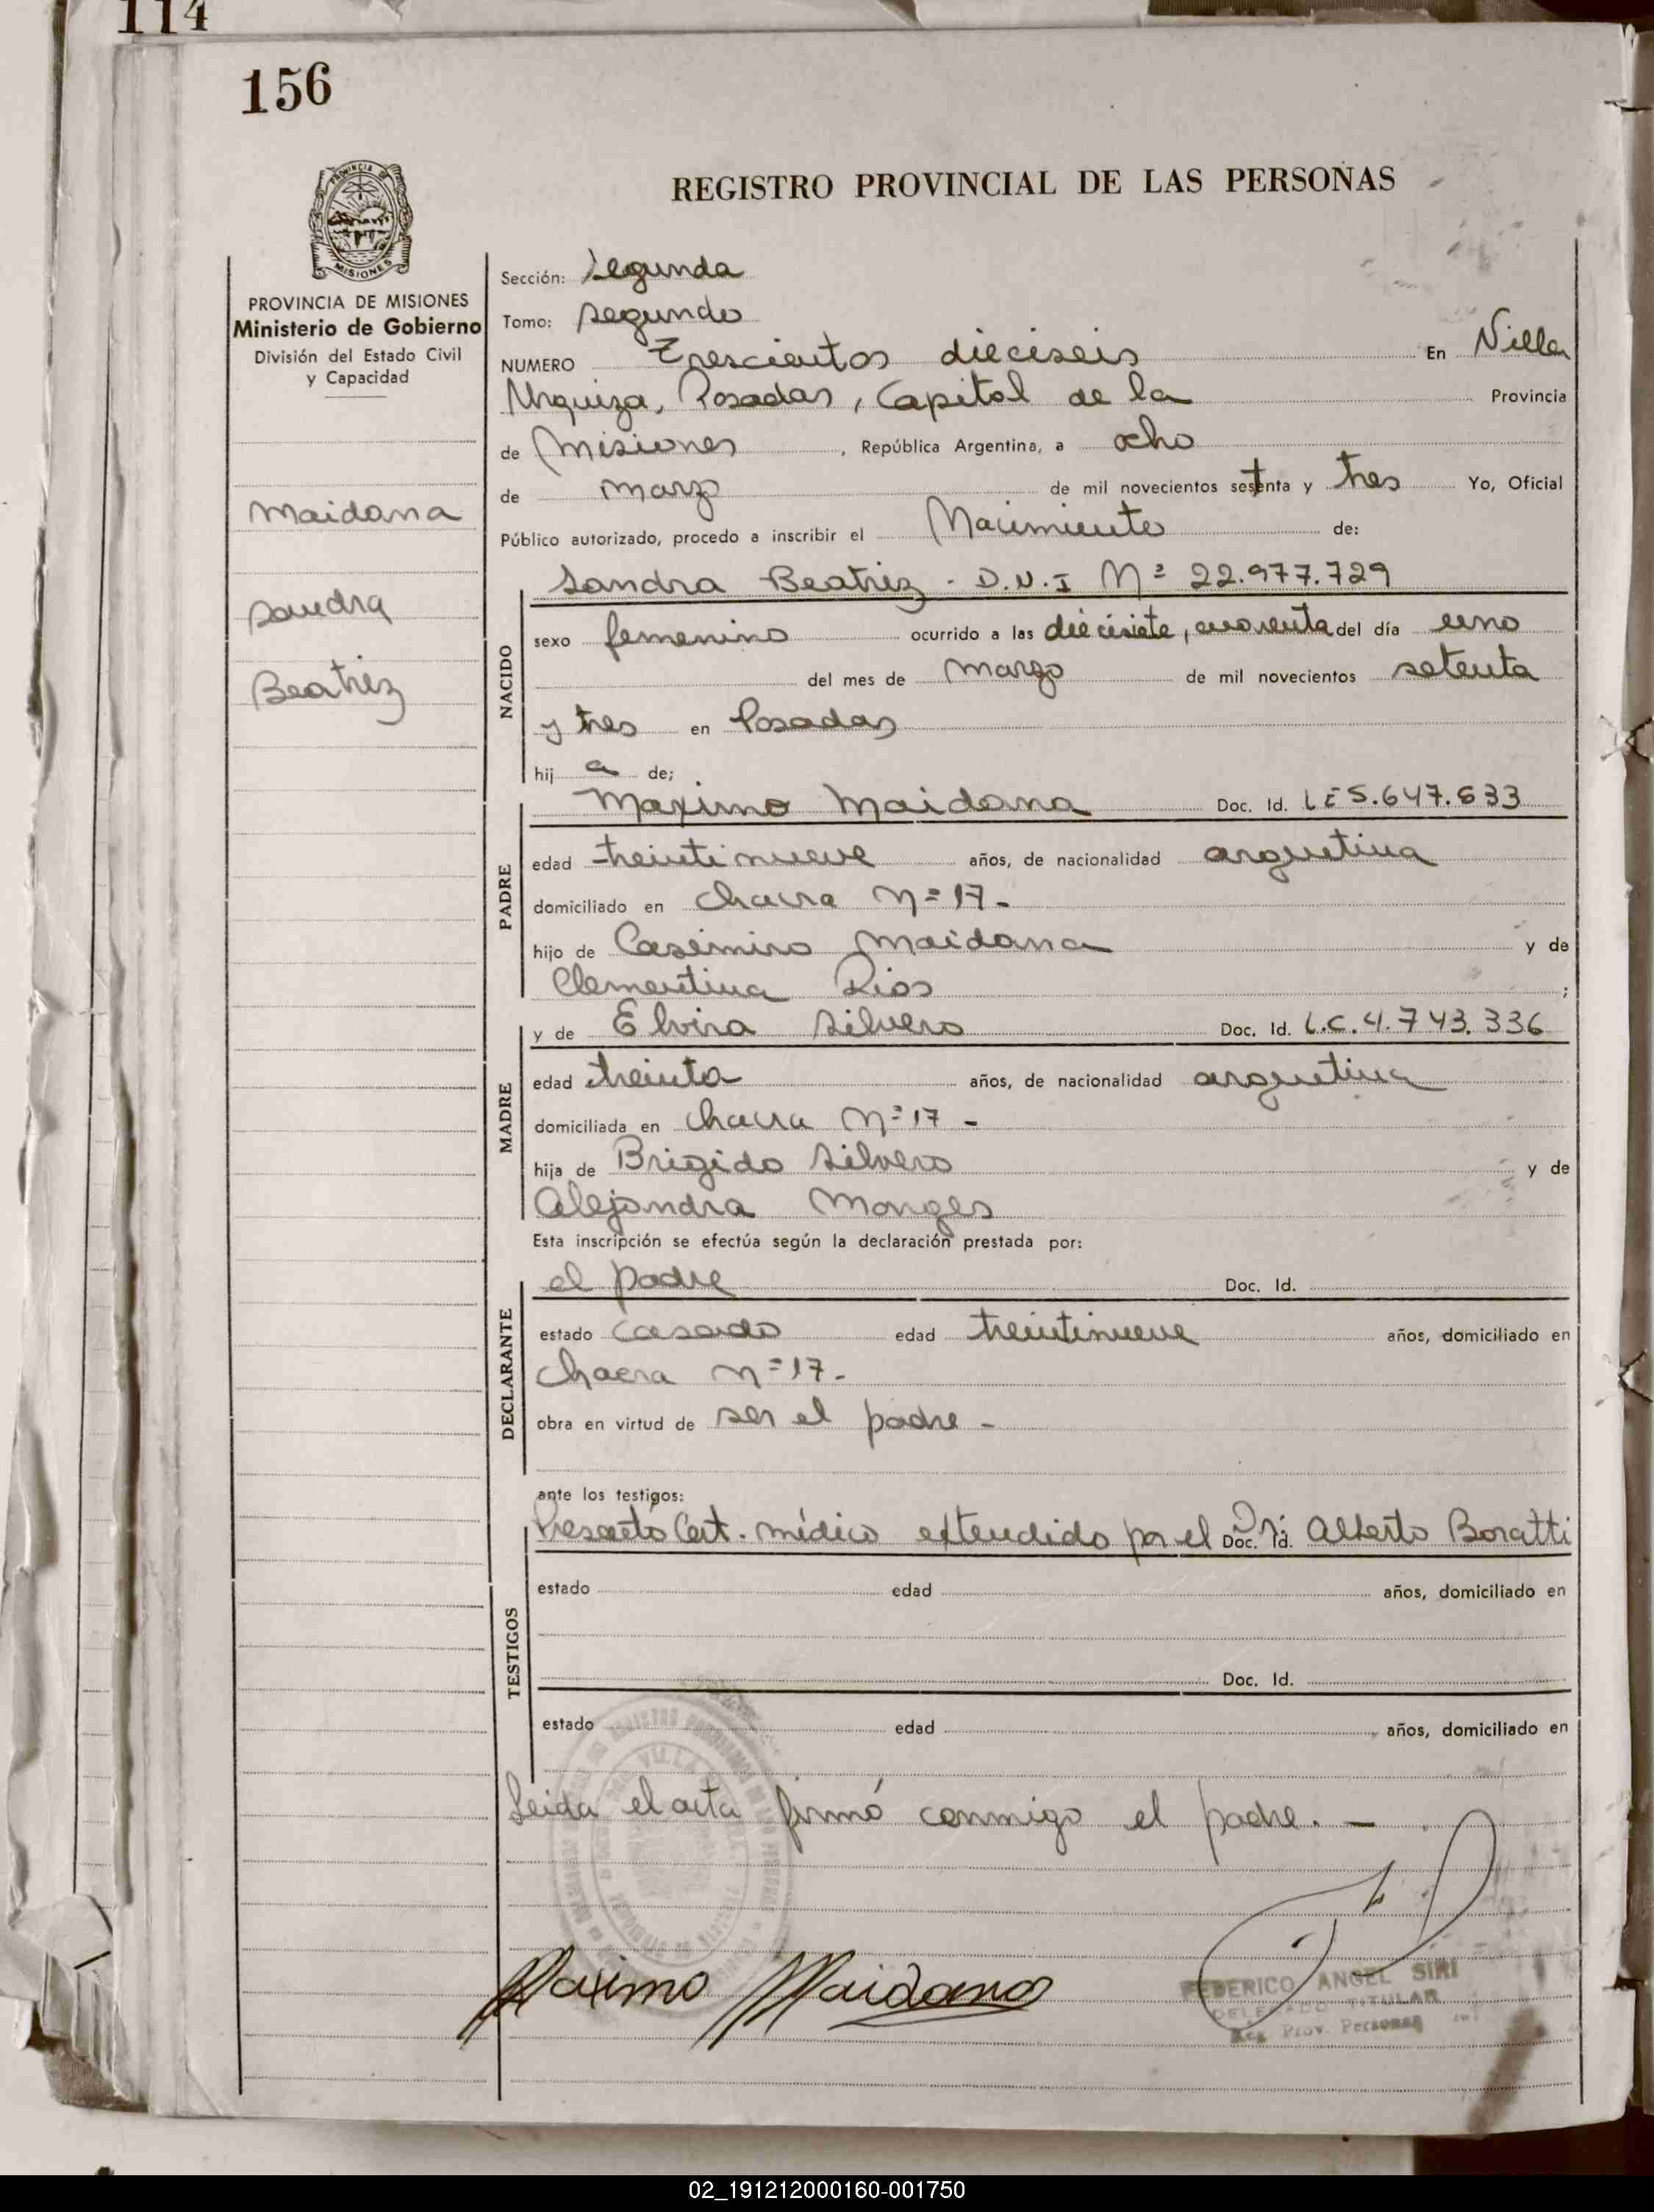 114
156
REGISTRO PROVINCIAL DE LAS PERSONAS
PROVINCIA DE
MISIONES
PROVINCIA DE MISIONES
Ministerio de Gobierno
División del Estado Civil
y Capacidad
Maidana
Sandra
Beatriz
Sección: Segunda
Tomo: segundo
NUMERO Trescientos dieciseis En Villa
Urquiza, Posadas, Capital de la Provincia
de Misiones, República Argentina, a ocho
de marzo de mil novecientos setenta y tres Yo, Oficial
Público autorizado, procedo a inscribir el Nacimiento de:
Sandra Beatriz - D.N.I Nº 22.977.729
NACIDO
sexo femenino ocurrido a las diecisiete, cuarenta del día uno
del mes de marzo de mil novecientos setenta
y tres en Posadas
hij a de;
PADRE
Maximo Maidana Doc. Id. L E 5.647.633
edad treintinueve años, de nacionalidad argentina
domiciliado en chacra Nº 17-
hijo de Casimiro Maidana y de
Clementina Rios ;
MADRE
y de Elvira Silvero Doc. Id. L.C. 4.743.336
edad treinta años, de nacionalidad argentina
domiciliada en chacra Nº 17 -
hija de Brigido Silvero y de
Alejandra Monges
Esta inscripción se efectúa según la declaración prestada por:
DECLARANTE
el padre Doc. Id.
estado casado edad treintinueve años, domiciliado en
chacra nº 17.-
obra en virtud de ser el padre -
ante los testigos:
TESTIGOS
Presentó Cert. médico extendido por el Doc. Id. Dr: Alberto Boratti
estado edad años, domiciliado en
Doc. Id.
estado edad años, domiciliado en
Leida el acta firmó conmigo el padre. -
Maximo Maidana
FEDERICO ANGEL SIRI
DELEGADO TITULAR
Reg. Prov. Personas
02_191212000160-001750